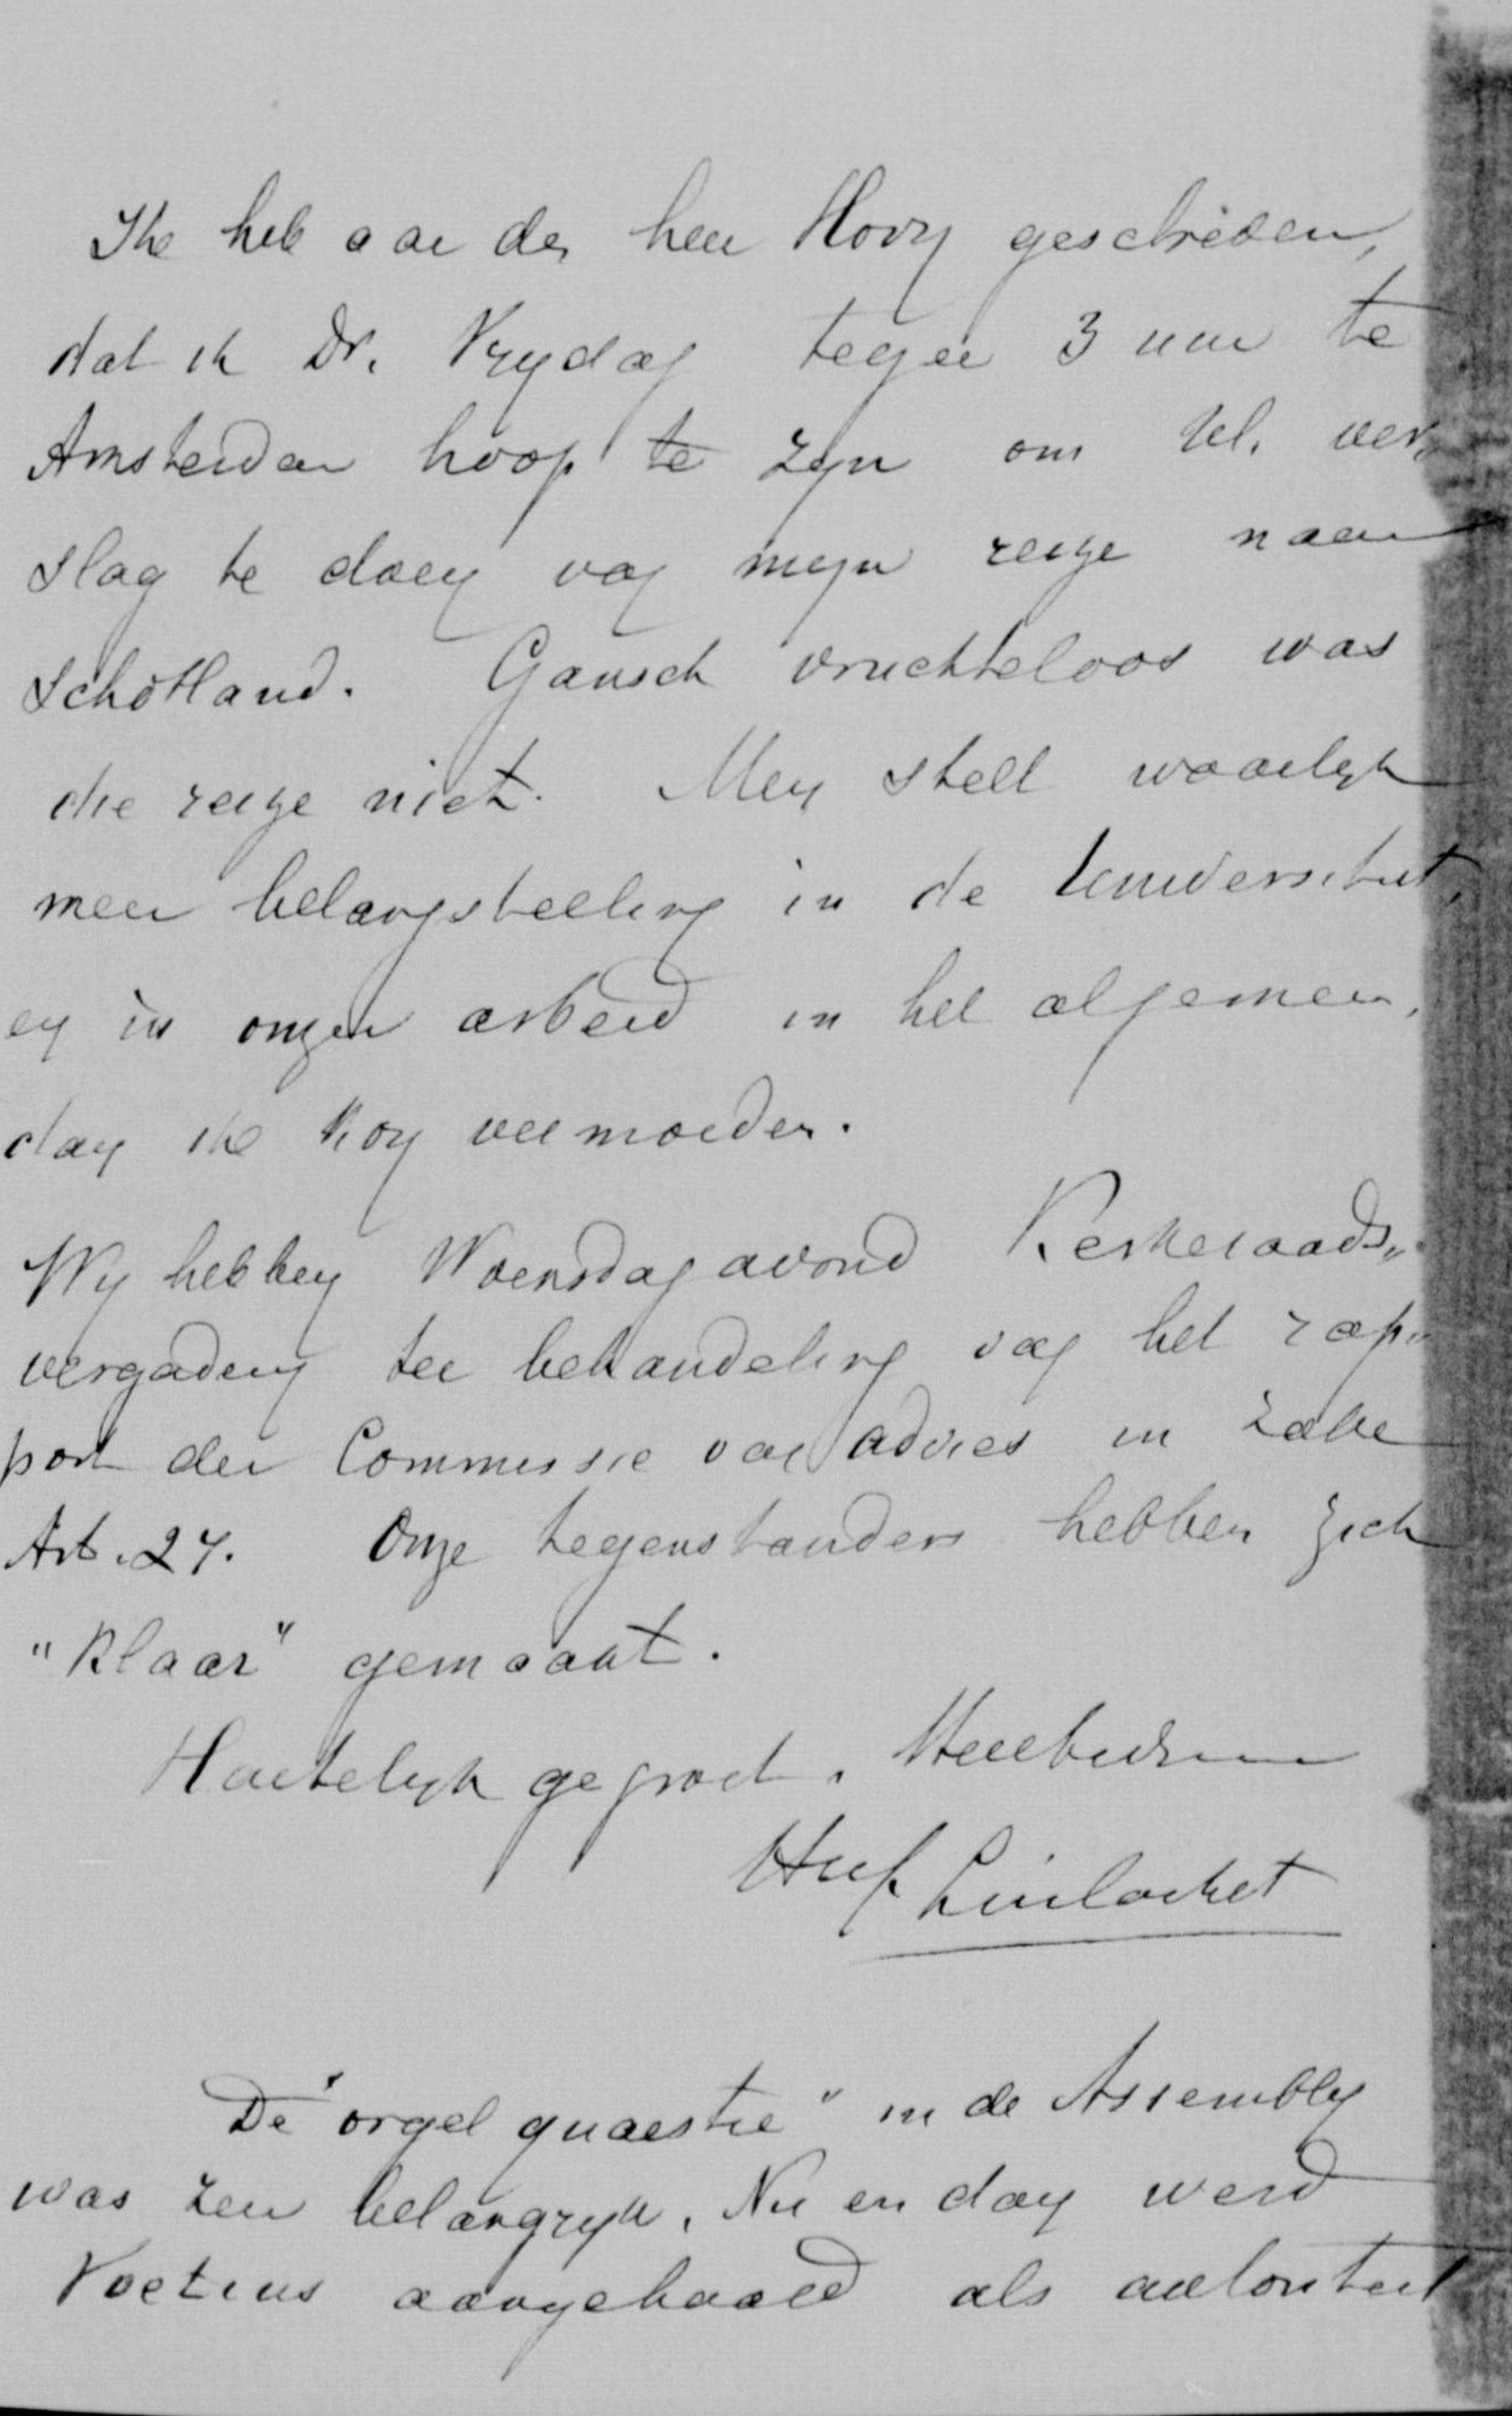 Ik heb aan den heer Hovy geschreven,
dat ik D.V. Vrydag tegen 3 uur te
Amsterdam hoop te zyn om Ul. ver„
slag te doen van mijn reize naar
Schotland. Gansch vruchteloos was
die reize niet. Men stelt waarlyk
meer belangstelling in de Universiteit,
en in onzen arbeid in het algemeen,
dan ik kon vermoeden.
Wy hebben Woensdagavond Kerkeraads„
vergadering ter behandeling van het rap„
port der Commissie van advies in zake
Art. 27. Onze tegenstanders hebben zich
"klaar" gemaakt.
Hartelyk gegroet.
De "orgel quaestie" in de Assembly
was zeer belangryk. Nu en dan werd
Voetius aangehaald als autoriteit